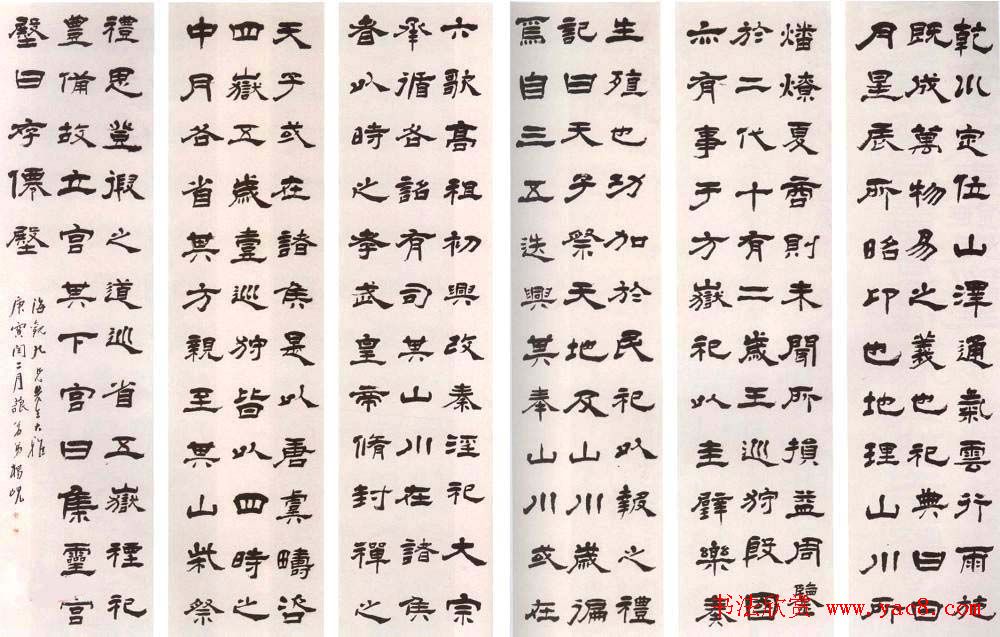 乾川定位山澤通氣雲行雨施
既成萬物易之義也祀典曰日
月星辰所昭卬也地理山川所
燔燎夏商則未聞所損益周鑒
於二代十有二歲王巡狩殷國
亦有事于方嶽祀以圭璧樂奏
生殖也功加於民祀以報之禮
記曰天子祭天地及山川歲徧
焉自三五迭興其奉山川或在
六歌高祖初興改秦淫祀大宗
承循各詔有司其山川在諸侯
者以時之孝武皇帝脩封禪之
天子或在諸侯是以唐虞疇咨
四嶽五歲壹巡狩皆以四時之
中月各省其方親至其山柴祭
禮思登徦之道巡省五嶽禋祀
豐備故立宮其下宮曰集靈宮
殿曰存僊殿
海觀九兄先生大雅
庚寅閏二月藐翁弟楊峴
书法欣赏 www.yac8.com